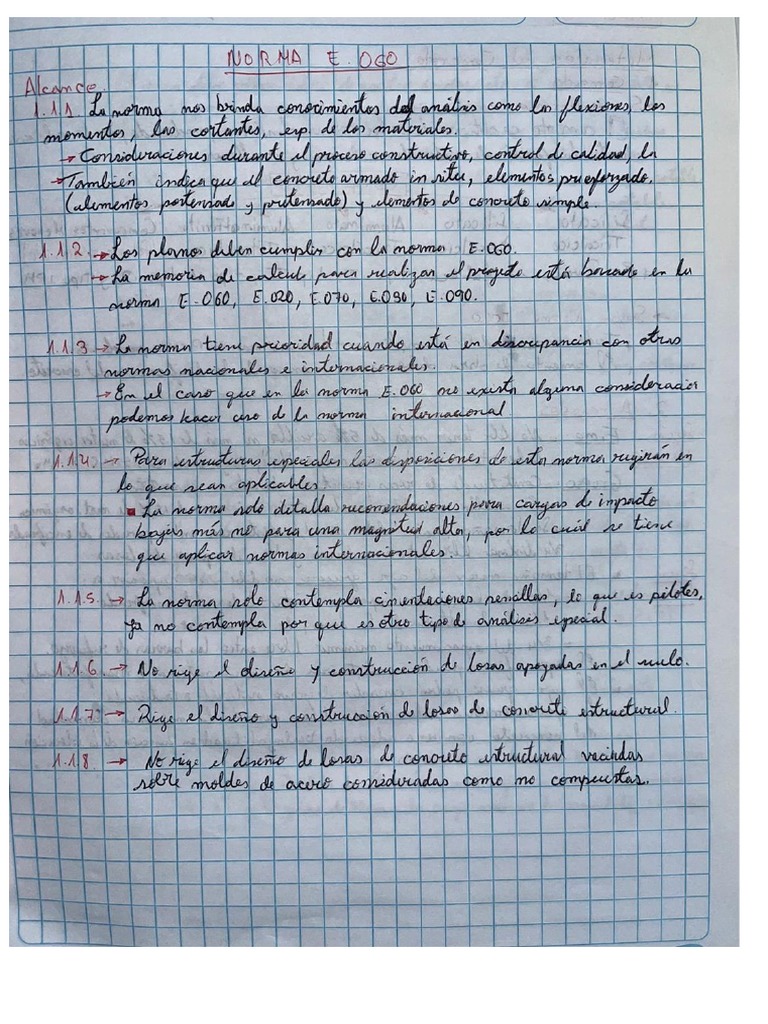 NORMA E.060
Alcance
1.1.1 La norma nos brinda conocimientos del análisis como las flexiones, los
momentos, las cortantes, esp. de los materiales.
→ Consideraciones durante el proceso constructivo, control de calidad, la
→ También indica que el concreto armado in situ, elementos preesforzado.
(elementos postensado y pretensado) y elementos de concreto simple.
1.1.2. → Los planos deben cumplir con la norma E.060.
→ La memoria de calculo para realizar el proyecto está basado en la
norma E.060, E.020, E.070, E.030, E.090.
1.1.3 → La norma tiene prioridad cuando está en discrepancia con otras
normas nacionales e internacionales.
→ En el caso que en la norma E.060 no exista alguna consideracion
podemos hacer uso de la norma internacional
1.1.4. → Para estructuras especiales las disposiciones de esta norma regirán en
lo que sean aplicables.
▪ La norma solo detalla recomendaciones para cargas de impacto
bajas más no para una magnitud alta, por lo cuál se tiene
que aplicar normas internacionales.
1.1.5. → La norma solo contempla cimentaciones sencillas, lo que es pilotes,
ya no contempla por que es otro tipo de análisis especial.
1.1.6. → No rige el diseño y construcción de losas apoyadas en el suelo.
1.1.7. → Rige el diseño y construcción de losas de concreto estructural.
1.1.8 → No rige el diseño de losas de concreto estructural vaciadas
sobre moldes de acero consideradas como no compuestas.